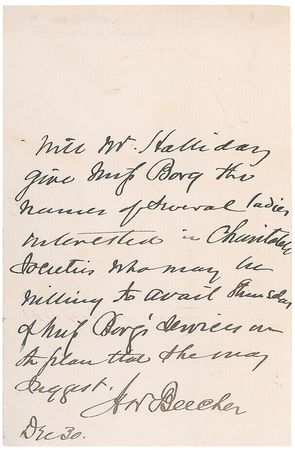 Will Mr. Halliday
give Miss Borg the
names of several ladies
interested in Charitable
Societies who may be
willing to avail themselves
of Miss Borg's services on
the plan that she may
suggest.
HW Beecher
Dec 30.